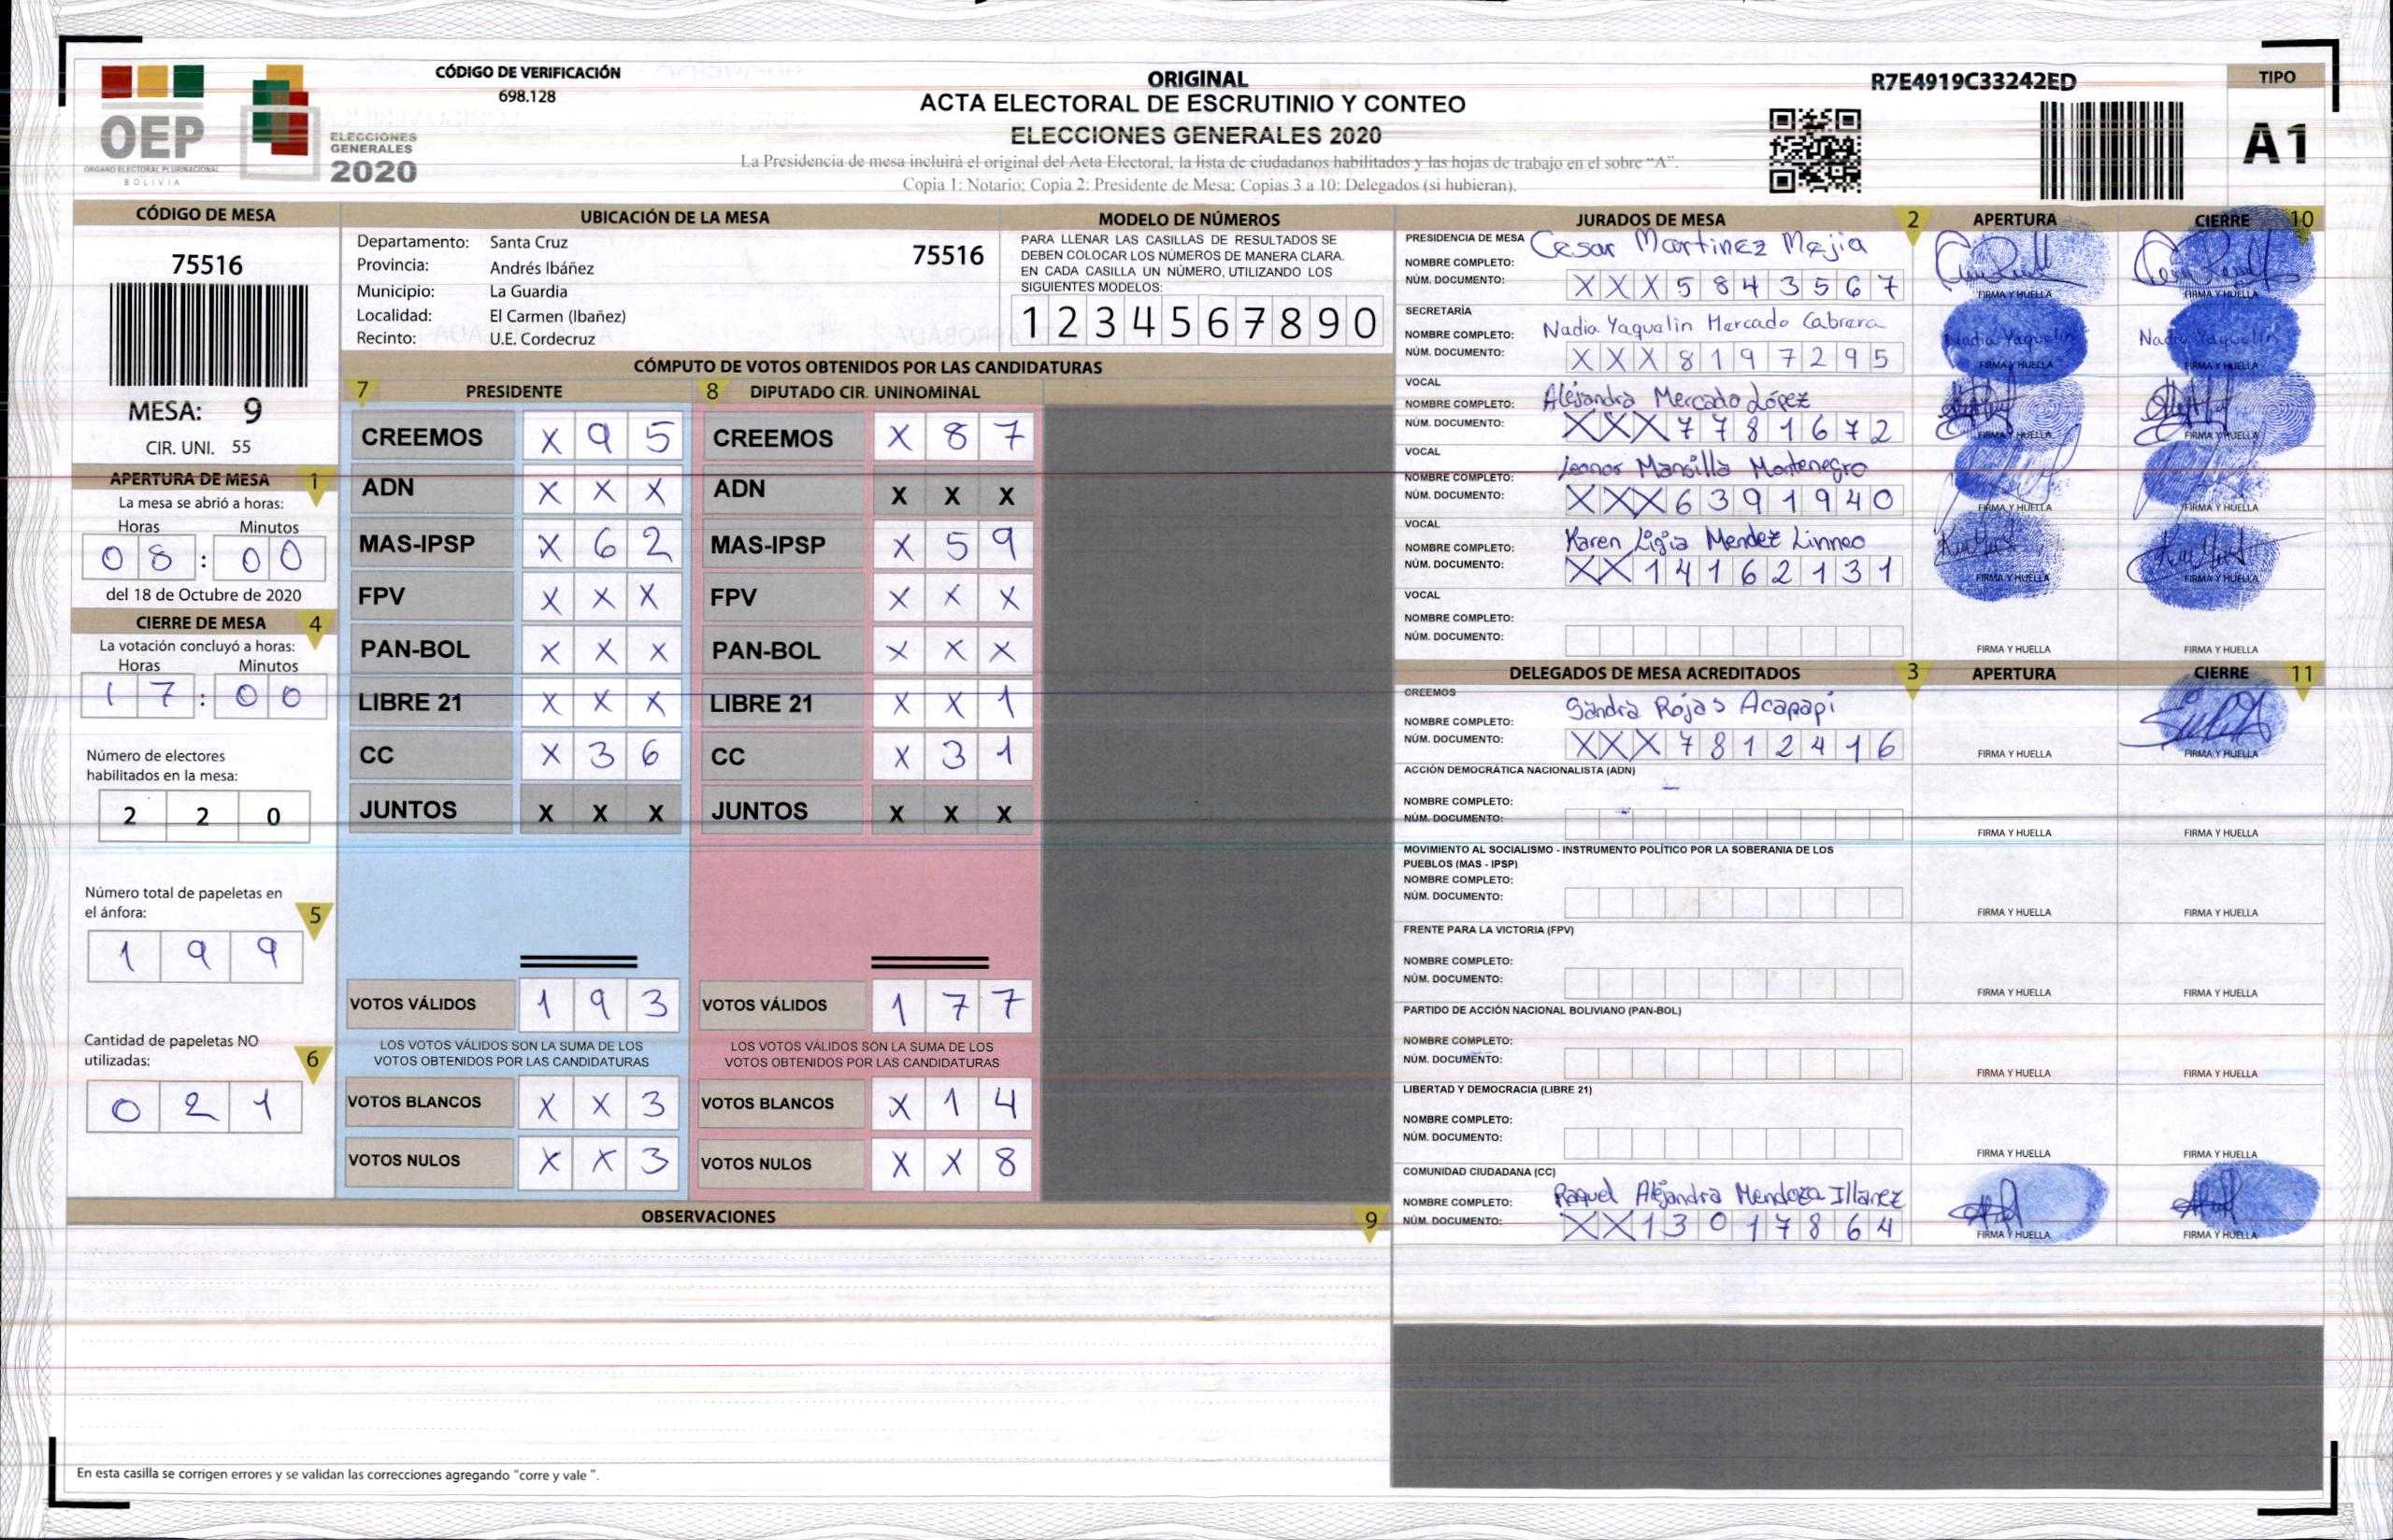 OEP
ÓRGANO ELECTORAL PLURINACIONAL
BOLIVIA
ELECCIONES
GENERALES
2020
CÓDIGO DE VERIFICACIÓN
698.128
ORIGINAL
ACTA ELECTORAL DE ESCRUTINIO Y CONTEO
ELECCIONES GENERALES 2020
La Presidencia de mesa incluirá el original del Acta Electoral, la lista de ciudadanos habilitados y las hojas de trabajo en el sobre “A”.
Copia 1: Notario; Copia 2: Presidente de Mesa; Copias 3 a 10: Delegados (si hubieran).
R7E4919C33242ED
TIPO
A1
CÓDIGO DE MESA
75516
MESA: 9
CIR. UNI. 55
APERTURA DE MESA 1
La mesa se abrió a horas:
Horas Minutos
0 8 : 0 0
del 18 de Octubre de 2020
CIERRE DE MESA 4
La votación concluyó a horas:
Horas Minutos
1 7 : 0 0
Número de electores
habilitados en la mesa:
2 2 0
Número total de papeletas en
el ánfora: 5
1 9 9
Cantidad de papeletas NO
utilizadas: 6
0 2 1
UBICACIÓN DE LA MESA
Departamento: Santa Cruz 75516
Provincia: Andrés Ibáñez
Municipio: La Guardia
Localidad: El Carmen (Ibañez)
Recinto: U.E. Cordecruz
MODELO DE NÚMEROS
PARA LLENAR LAS CASILLAS DE RESULTADOS SE
DEBEN COLOCAR LOS NÚMEROS DE MANERA CLARA.
EN CADA CASILLA UN NÚMERO, UTILIZANDO LOS
SIGUIENTES MODELOS:
1 2 3 4 5 6 7 8 9 0
CÓMPUTO DE VOTOS OBTENIDOS POR LAS CANDIDATURAS
7 PRESIDENTE 8 DIPUTADO CIR. UNINOMINAL
CREEMOS X 9 5 CREEMOS X 8 7
ADN X X X ADN X X X
MAS-IPSP X 6 2 MAS-IPSP X 5 9
FPV X X X FPV X X X
PAN-BOL X X X PAN-BOL X X X
LIBRE 21 X X X LIBRE 21 X X 1
CC X 3 6 CC X 3 1
JUNTOS X X X JUNTOS X X X
VOTOS VÁLIDOS 1 9 3 VOTOS VÁLIDOS 1 7 7
LOS VOTOS VÁLIDOS SON LA SUMA DE LOS LOS VOTOS VÁLIDOS SON LA SUMA DE LOS
VOTOS OBTENIDOS POR LAS CANDIDATURAS VOTOS OBTENIDOS POR LAS CANDIDATURAS
VOTOS BLANCOS X X 3 VOTOS BLANCOS X 1 4
VOTOS NULOS X X 3 VOTOS NULOS X X 8
OBSERVACIONES 9
En esta casilla se corrigen errores y se validan las correcciones agregando "corre y vale ".
JURADOS DE MESA 2 APERTURA CIERRE 10
PRESIDENCIA DE MESA
NOMBRE COMPLETO: Cesar Martinez Mejia
NÚM. DOCUMENTO: X X X 5 8 4 3 5 6 7 FIRMA Y HUELLA FIRMA Y HUELLA
SECRETARÍA
NOMBRE COMPLETO: Nadia Yaquelin Mercado Cabrera Nadia Yaquelin Nadia Yaquelin
NÚM. DOCUMENTO: X X X 8 1 9 7 2 9 5 FIRMA Y HUELLA FIRMA Y HUELLA
VOCAL
NOMBRE COMPLETO: Alejandra Mercado López
NÚM. DOCUMENTO: X X X 7 7 8 1 6 7 2 FIRMA Y HUELLA FIRMA Y HUELLA
VOCAL
NOMBRE COMPLETO: Leonor Mansilla Montenegro
NÚM. DOCUMENTO: X X X 6 3 9 1 9 4 0 FIRMA Y HUELLA FIRMA Y HUELLA
VOCAL
NOMBRE COMPLETO: Karen Ligia Mendez Linneo
NÚM. DOCUMENTO: X X 1 4 1 6 2 1 3 1 FIRMA Y HUELLA FIRMA Y HUELLA
VOCAL
NOMBRE COMPLETO:
NÚM. DOCUMENTO: FIRMA Y HUELLA FIRMA Y HUELLA
DELEGADOS DE MESA ACREDITADOS 3 APERTURA CIERRE 11
CREEMOS
NOMBRE COMPLETO: Sandra Rojas Acapapi
NÚM. DOCUMENTO: X X X 7 8 1 2 4 1 6 FIRMA Y HUELLA FIRMA Y HUELLA
ACCIÓN DEMOCRÁTICA NACIONALISTA (ADN)
NOMBRE COMPLETO:
NÚM. DOCUMENTO: FIRMA Y HUELLA FIRMA Y HUELLA
MOVIMIENTO AL SOCIALISMO - INSTRUMENTO POLÍTICO POR LA SOBERANIA DE LOS
PUEBLOS (MAS - IPSP)
NOMBRE COMPLETO:
NÚM. DOCUMENTO: FIRMA Y HUELLA FIRMA Y HUELLA
FRENTE PARA LA VICTORIA (FPV)
NOMBRE COMPLETO:
NÚM. DOCUMENTO: FIRMA Y HUELLA FIRMA Y HUELLA
PARTIDO DE ACCIÓN NACIONAL BOLIVIANO (PAN-BOL)
NOMBRE COMPLETO:
NÚM. DOCUMENTO: FIRMA Y HUELLA FIRMA Y HUELLA
LIBERTAD Y DEMOCRACIA (LIBRE 21)
NOMBRE COMPLETO:
NÚM. DOCUMENTO: FIRMA Y HUELLA FIRMA Y HUELLA
COMUNIDAD CIUDADANA (CC)
NOMBRE COMPLETO: Raquel Alejandra Mendoza Illanez
NÚM. DOCUMENTO: X X 1 3 0 1 7 8 6 4 FIRMA Y HUELLA FIRMA Y HUELLA